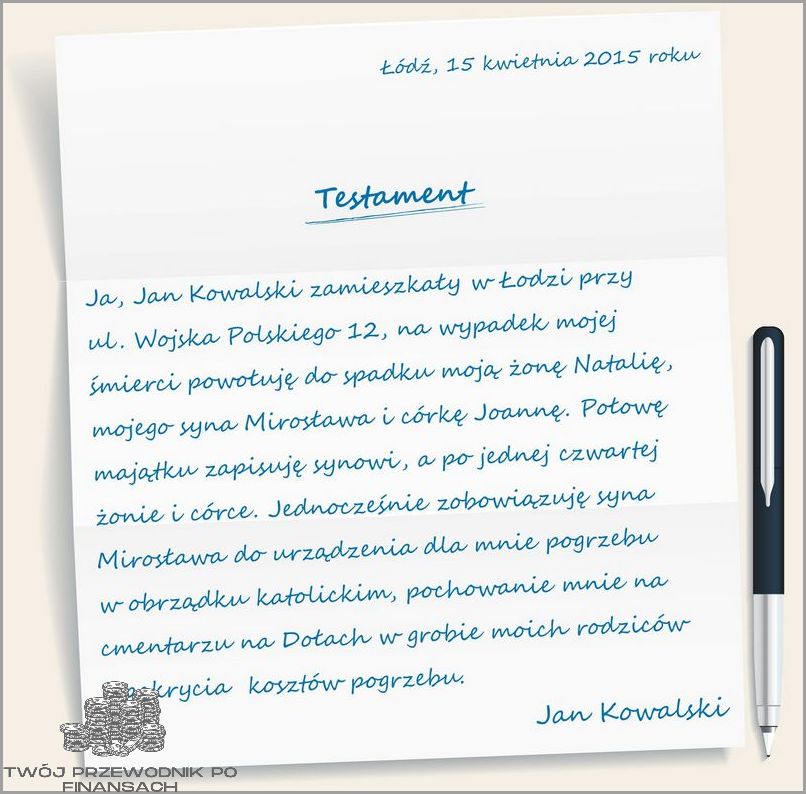 Łódź, 15 kwietnia 2015 roku
Testament
Ja, Jan Kowalski zamieszkały w Łodzi przy
ul. Wojska Polskiego 12, na wypadek mojej
śmierci powołuję do spadku moją żonę Natalię,
mojego syna Mirosława i córkę Joannę. Połowę
majątku zapisuję synowi, a po jednej czwartej
żonie i córce. Jednocześnie zobowiązuję syna
Mirosława do urządzenia dla mnie pogrzebu
w obrządku katolickim, pochowanie mnie na
cmentarzu na Dołach w grobie moich rodziców
pokrycia kosztów pogrzebu.
Jan Kowalski
TWÓJ PRZEWODNIK PO
FINANSACH